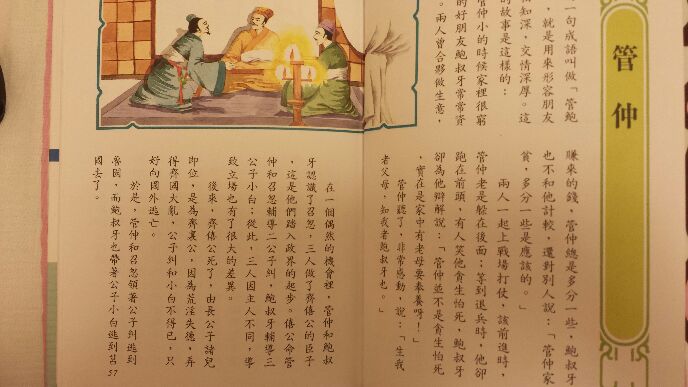 管仲
一句成語叫做「管鮑
，就是用來形容朋友
知深，交情深厚。這
的故事是這樣的：
管仲小的時候家裡很窮
的好朋友鮑叔牙常常資
。兩人曾合夥做生意，
賺來的錢，管仲總是多分一些，鮑叔牙
也不和他計較，還對別人說：「管仲家
貧，多分一些是應該的。」
兩人一起上戰場打仗，該前進時，
管仲老是躲在後面；等到退兵時，他卻
跑在前頭，有人笑他貪生怕死，鮑叔牙
卻為他辯解說：「管仲並不是貪生怕死
，實在是家中有老母要奉養呀！」
管仲聽了，非常感動，說：「生我
者父母，知我者鮑叔牙也。」
在一個偶然的機會裡，管仲和鮑叔
牙認識了召忽，三人做了齊僖公的臣子
，這是他們踏入政界的起步。僖公命管
仲和召忽輔導二公子糾，鮑叔牙輔導三
公子小白；從此，三人因主人不同，導
致立場也有了很大的差異。
後來，齊僖公死了，由長公子諸兒
即位，是為齊襄公，因為荒淫失德，弄
得齊國大亂，公子糾和小白不得已，只
好向國外逃亡。
於是，管仲和召忽領著公子糾逃到
魯國，而鮑叔牙也帶著公子小白逃到莒
國去了。
57